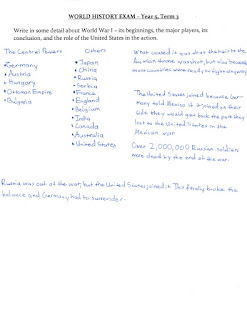 WORLD HISTORY EXAM – Year 5, Term 3
Write in some detail about World War I – its beginnings, the major players, its
conclusion, and the role of the United States in the action.
The Central Powers
• Germany
• Austria
• Hungary
• Ottoman Empire
• Bulgaria
Others
• Japan
• China
• Russia
• Serbia
• France
• England
• Belgium
• India
• Canada
• Australia
• United States
What caused it was that the heir to the
Austrian throne was shot, but also because
most countries were ready to fight anyway
The United States joined because Ger-
many told Mexico if it joined on their
side they would get back the part they
lost to the United States in the
Mexican war.
Over 2,000,000 Russian soldiers
were dead by the end of the war.
Russia was out of the war, but the United States joined it. This finally broke the
balance and Germany had to surrender.